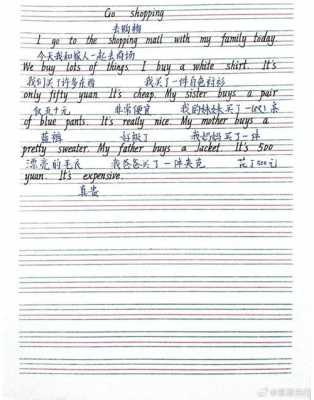 Go shopping
去购物
I go to the shopping mall with my family today.
今天我和家人一起去商场
We buy lots of things. I buy a white shirt. It's
我们买了许多东西 我买了一件白色衬衫
only fifty yuan. It's cheap. My sister buys a pair
仅五十元 非常便宜 我的妹妹买了一(一条
of blue pants. It's really nice. My mother buys a
蓝裤 好极了 我妈妈买了一件
pretty sweater. My father buys a jacket. It's 500
漂亮的毛衣 我爸爸买了一件夹克 花了500元
yuan. It's expensive.
真贵